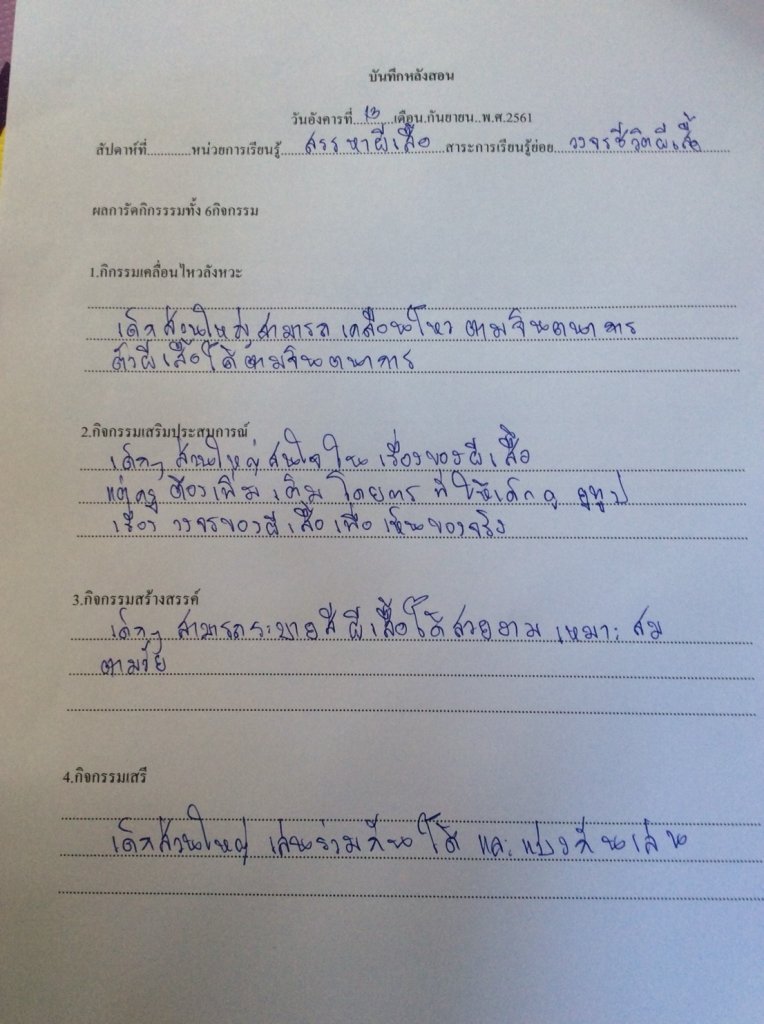 บันทึกหลังสอน
วันอังคารที่....13....เดือน.กันยายน..พ.ศ.2561
สัปดาห์ที่............หน่วยการเรียนรู้......สรรหาผีเสื้อ...สาระการเรียนรู้ย่อย...วงจรชีวิตผีเสื้อ
ผลการัดกิกรรรมทั้ง 6กิจกรรม
1.กิกรรมเคลื่อนไหวลังหวะ
เด็กส่วนใหญ่สามารถ เคลื่อนไหว ตามจินตนาการ
ตัวผีเสื้อได้ตามจินตนาการ
2.กิจกรรมเสริมประสบการณ์
เด็กๆ ส่วนใหญ่สนใจใน เรื่องของผีเสื้อ
แต่ครู ต้องเพิ่มเติม โดยการ ที่ ให้เด็กดู ยูทูป
เรื่อง วงจรของผีเสื้อ เพื่อ เห็นของจริง
3.กิจกรรมสร้างสรรค์
เด็กๆ สามารถระบายสี ผีเสื้อได้สวยงาม เหมาะสม
ตามวัย
4.กิจกรรมเสรี
เด็กส่วนใหญ่ เล่นร่วมกันได้ และแบ่งกันเล่น